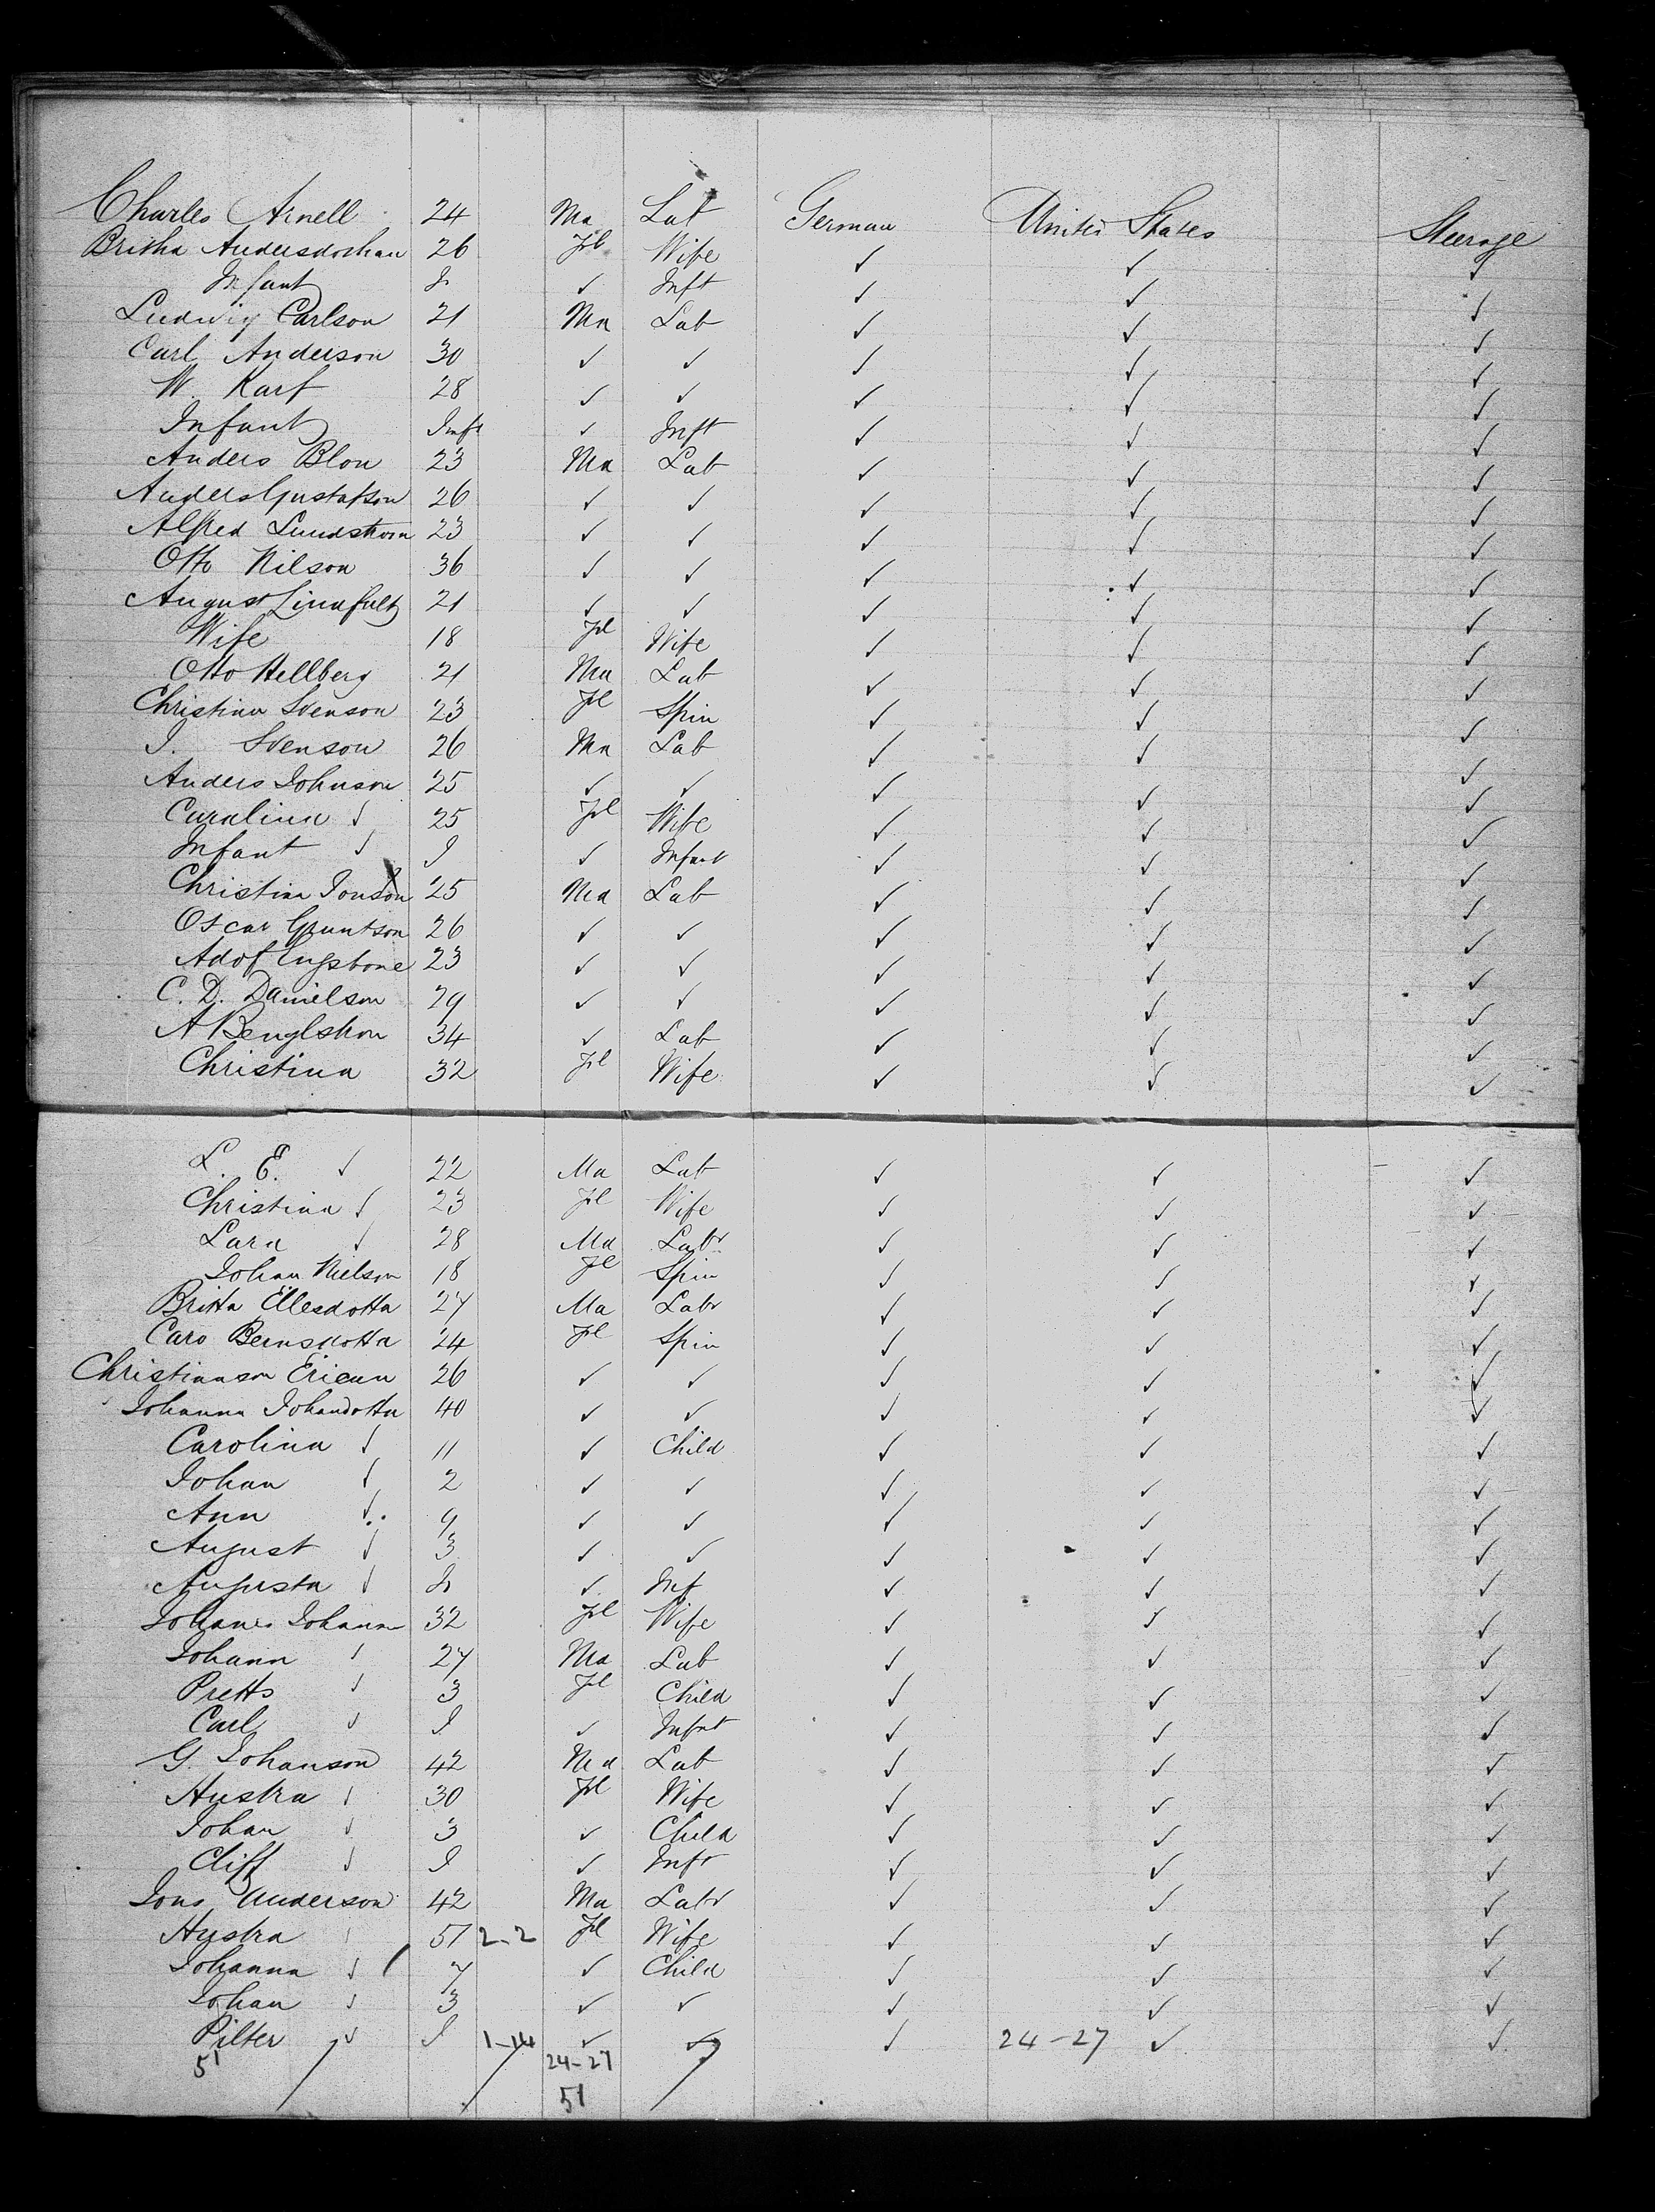 Charles Arnell 24 Ma Lab German United States Steerage
Britha Andersdochan 26 Fl Wife ✓ ✓ ✓
Infant ✓ Inft ✓ ✓ ✓
Ludwig Carlson 21 Ma Lab ✓ ✓ ✓
Carl Anderson 30 ✓ ✓ ✓ ✓ ✓
W. Karf 28 ✓ ✓ ✓ ✓ ✓
Infant Inft ✓ Inft ✓ ✓ ✓
Anders Blon 23 Ma Lab ✓ ✓ ✓
Anders Gustafson 26 ✓ ✓ ✓ ✓ ✓
Alfred Lundstrom 23 ✓ ✓ ✓ ✓ ✓
Otto Nilson 36 ✓ ✓ ✓ ✓ ✓
August Linnfult 21 ✓ ✓ ✓ ✓ ✓
Wife 18 Fl Wife ✓ ✓ ✓
Otto Hellberg 21 Ma Lab ✓ ✓ ✓
Christina Svenson 23 Fl Spin ✓ ✓ ✓
I. Svenson 26 Ma Lab ✓ ✓ ✓
Anders Johnson 25 ✓ ✓ ✓ ✓ ✓
Caralina ✓ 25 Fl Wife ✓ ✓ ✓
Infant ✓ I ✓ Infant ✓ ✓ ✓
Christina Jonson 25 Ma Lab ✓ ✓ ✓
Oscar Gruntson 26 ✓ ✓ ✓ ✓ ✓
Adof Engstone 23 ✓ ✓ ✓ ✓ ✓
C. D. Danielson 29 ✓ ✓ ✓ ✓ ✓
A Benglstron 34 ✓ Lab ✓ ✓ ✓
Christina 32 Fl Wife ✓ ✓ ✓
L. E. ✓ 22 Ma Lab ✓ ✓ ✓
Christina ✓ 23 Fl Wife ✓ ✓ ✓
Lara ✓ 28 Ma Labr ✓ ✓ ✓
Johan Nielson 18 Fl Spin ✓ ✓ ✓
Britta Ellesdotta 27 Ma Labr ✓ ✓ ✓
Caro Bernsdotta 24 Fl Spin ✓ ✓ ✓
Christianson Ericun 26 ✓ ✓ ✓ ✓ ✓
Johanna Johandotta 40 ✓ ✓ ✓ ✓ ✓
Carolina ✓ 11 ✓ Child ✓ ✓ ✓
Johan ✓ 2 ✓ ✓ ✓ ✓ ✓
Ann ✓ 9 ✓ ✓ ✓ ✓ ✓
August ✓ 3 ✓ ✓ ✓ ✓ ✓
Augusta ✓ ✓ Inf ✓ ✓ ✓
Johanes Johann 32 Fl Wife ✓ ✓ ✓
Johann ✓ 27 Ma Lab ✓ ✓ ✓
Pretts ✓ 3 Fl Child ✓ ✓ ✓
Carl ✓ I ✓ Infnt ✓ ✓ ✓
G. Johanson 42 Ma Lab ✓ ✓ ✓
Austra ✓ 30 Fl Wife ✓ ✓ ✓
Johan ✓ 3 ✓ Child ✓ ✓ ✓
Cliff ✓ I ✓ Inft ✓ ✓ ✓
Jons Anderson 42 Ma Labr ✓ ✓ ✓
Austra ✓ 51 2-2 Fl Wife ✓ ✓ ✓
Johanna ✓ 7 ✓ Child ✓ ✓ ✓
Johan ✓ 3 ✓ ✓ ✓ ✓ ✓
Pilter ✓ I 1-14 ✓ ✓ ✓ 24-27 ✓ ✓
51 24-27
51